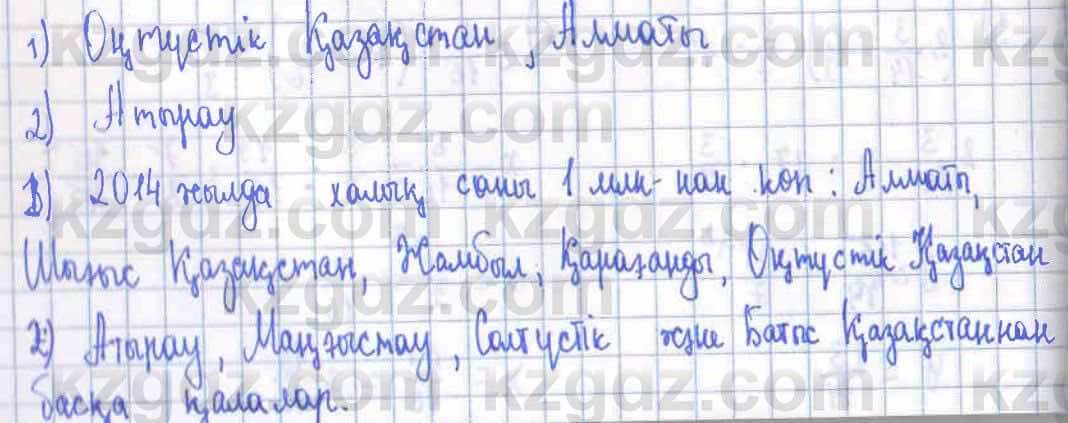 1) Оңтүстік Қазақстан, Алматы
2) Атырау
1) 2014 жылда халық саны 1 млн-нан көп: Алматы,
Шығыс Қазақстан, Жамбыл, Қарағанды, Оңтүстік Қазақстан
2) Атырау, Маңғыстау, Солтүстік және Батыс Қазақстаннан
басқа қалалар.
kzgdz.com